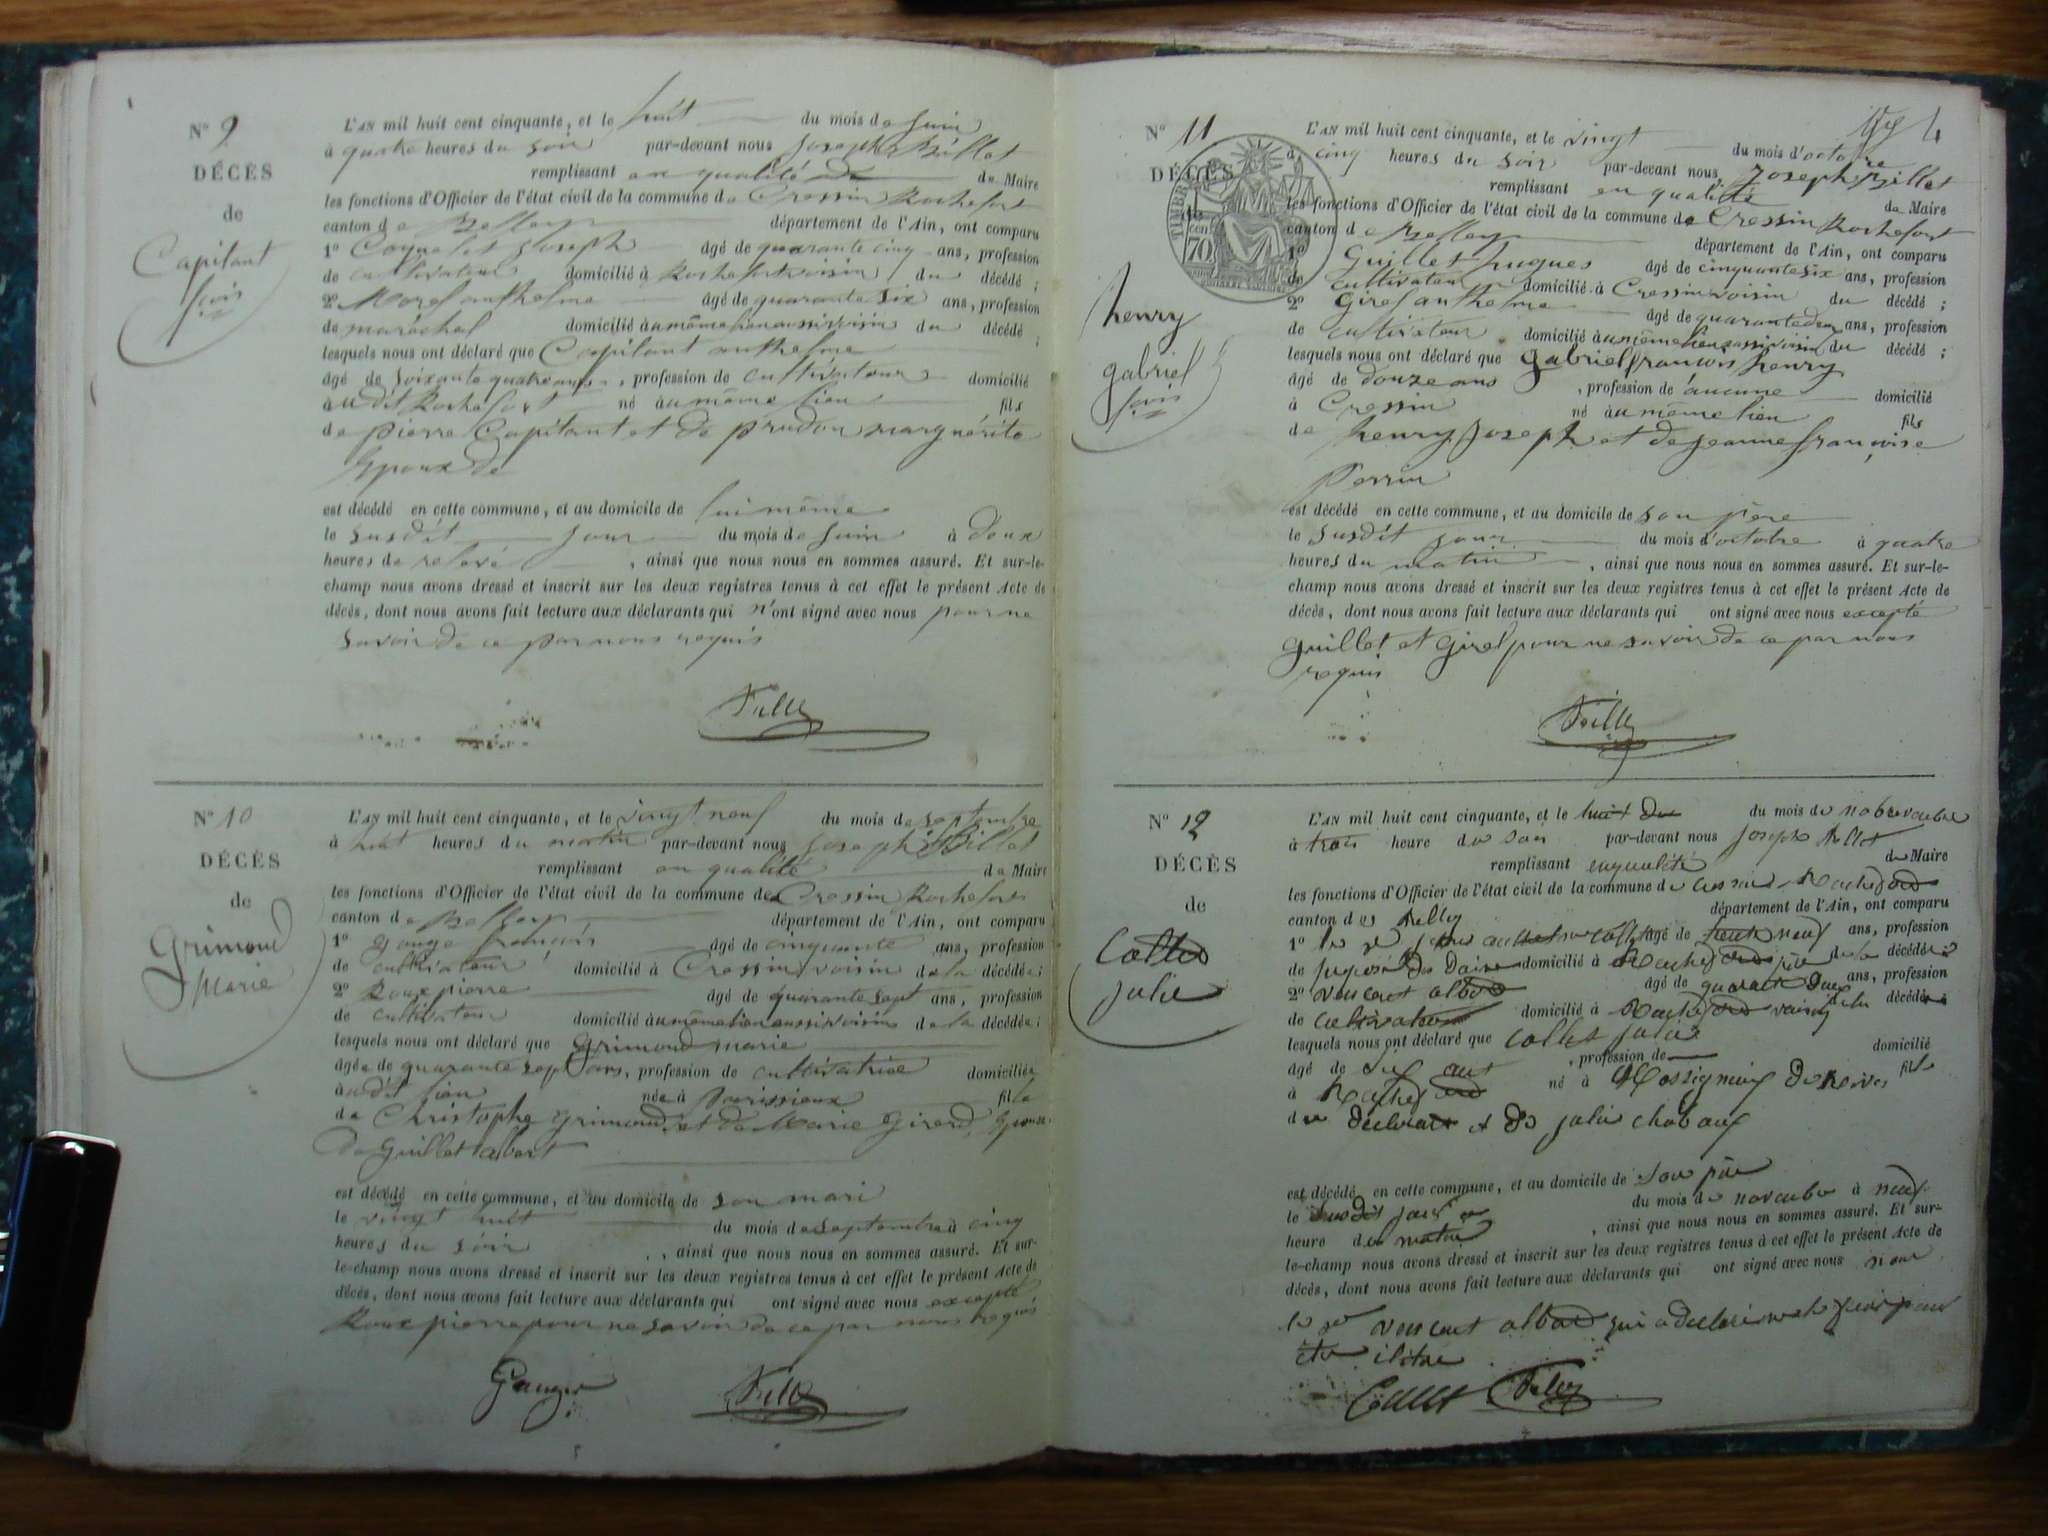 N° 9
DÉCÈS
de
Capitant
L'AN mil huit cent cinquante, et le huit du mois de Juin
à quatre heures du soir par-devant nous Joseph Billet
remplissant en qualité de Maire
les fonctions d'Officier de l'état civil de la commune de Cressin Rochefort
canton de Belley département de l'Ain, ont comparu
1° Coquelet Joseph âgé de quarante cinq ans, profession
de cultivateur domicilié à Rochefort voisin du décédé ;
2° Morel anthelme âgé de quarante six ans, profession
de maréchal domicilié au même lieu aussi voisin du décédé ;
lesquels nous ont déclaré que Capitant anthelme
âgé de soixante quatre ans, profession de cultivateur domicilié
audit Rochefort né au même lieu fils
de pierre Capitant et de prudon marguérite
Epoux de
est décédé en cette commune, et au domicile de lui même
le susdit jour du mois de Juin à deux
heures de relevé, ainsi que nous nous en sommes assuré. Et sur-le-
champ nous avons dressé et inscrit sur les deux registres tenus à cet effet le présent Acte de
décès, dont nous avons fait lecture aux déclarants qui n'ont signé avec nous pour ne
savoir de ce par nous requis
N° 10
DÉCÈS
de
Grimond
Marie
L'AN mil huit cent cinquante, et le vingt neuf du mois de septembre
à huit heures du matin par-devant nous Joseph Billet
remplissant en qualité de Maire
les fonctions d'Officier de l'état civil de la commune de Cressin Rochefort
canton de Belley département de l'Ain, ont comparu
1° Gouge françois âgé de cinquante ans, profession
de cultivateur domicilié à Cressin voisin de la décédée ;
2° Roux pierre âgé de quarante sept ans, profession
de cultivateur domicilié au même lieu aussi voisin de la décédée ;
lesquels nous ont déclaré que Grimond marie
âgée de quarante sept ans, profession de cultivatrice domiciliée
audit lieu née à Parissieux fille
de Christophe Grimond et de Marie Girerd, Epouse
de Guillet albert
est décédé en cette commune, et au domicile de son mari
le vingt huit du mois de septembre à cinq
heures du soir, ainsi que nous nous en sommes assuré. Et sur-
le-champ nous avons dressé et inscrit sur les deux registres tenus à cet effet le présent Acte de
décès, dont nous avons fait lecture aux déclarants qui ont signé avec nous excepté
Roux pierre pour ne savoir de ce par nous requis
N° 11
DÉCÈS
TIMBRE
70
henry
gabriel
L'AN mil huit cent cinquante, et le vingt du mois d'octobre
à cinq heures du soir par-devant nous Joseph Billet
remplissant en qualité de Maire
les fonctions d'Officier de l'état civil de la commune de Cressin Rochefort
canton de Belley département de l'Ain, ont comparu
1° Guillet hugues âgé de cinquante six ans, profession
de cultivateur domicilié à Cressin voisin du décédé ;
2° Girel anthelme âgé de quarante deux ans, profession
de cultivateur domicilié au même lieu aussi voisin du décédé ;
lesquels nous ont déclaré que Gabriel françois henry
âgé de douze ans, profession de aucune domicilié
à Cressin né au même lieu fils
de henry Joseph et de Jeanne françoise
Perrin
est décédé en cette commune, et au domicile de son père
le susdit jour du mois d'octobre à quatre
heures du matin, ainsi que nous nous en sommes assuré. Et sur-le-
champ nous avons dressé et inscrit sur les deux registres tenus à cet effet le présent Acte de
décès, dont nous avons fait lecture aux déclarants qui ont signé avec nous excepté
Guillet et Girel pour ne savoir de ce par nous
requis
N° 12
DÉCÈS
de
Collet
julie
L'AN mil huit cent cinquante, et le huit du mois de
à trois heure du soir par-devant nous joseph Billet
remplissant en qualité de Maire
les fonctions d'Officier de l'état civil de la commune de Cressin Rochefort
canton de Belley département de l'Ain, ont comparu
1° le sr Collet âgé de trente neuf ans, profession
de préposé des Douanes domicilié à Rochefort père de la décédée
2° Vincent albert âgé de quarante deux ans, profession
de cultivateur domicilié à Rochefort voisin de la décédée
lesquels nous ont déclaré que Collet julie
âgé de six ans, profession de domicilié
à Rochefort né à fille
du déclarant et de julie chabaux
est décédé en cette commune, et au domicile de son père
le susdit jour du mois de novembre à neuf
heure du matin, ainsi que nous nous en sommes assuré. Et sur-
le-champ nous avons dressé et inscrit sur les deux registres tenus à cet effet le présent Acte de
décès, dont nous avons fait lecture aux déclarants qui ont signé avec nous sinon
le sr Vincent albert qui a déclaré ne le savoir pour
être
Collet